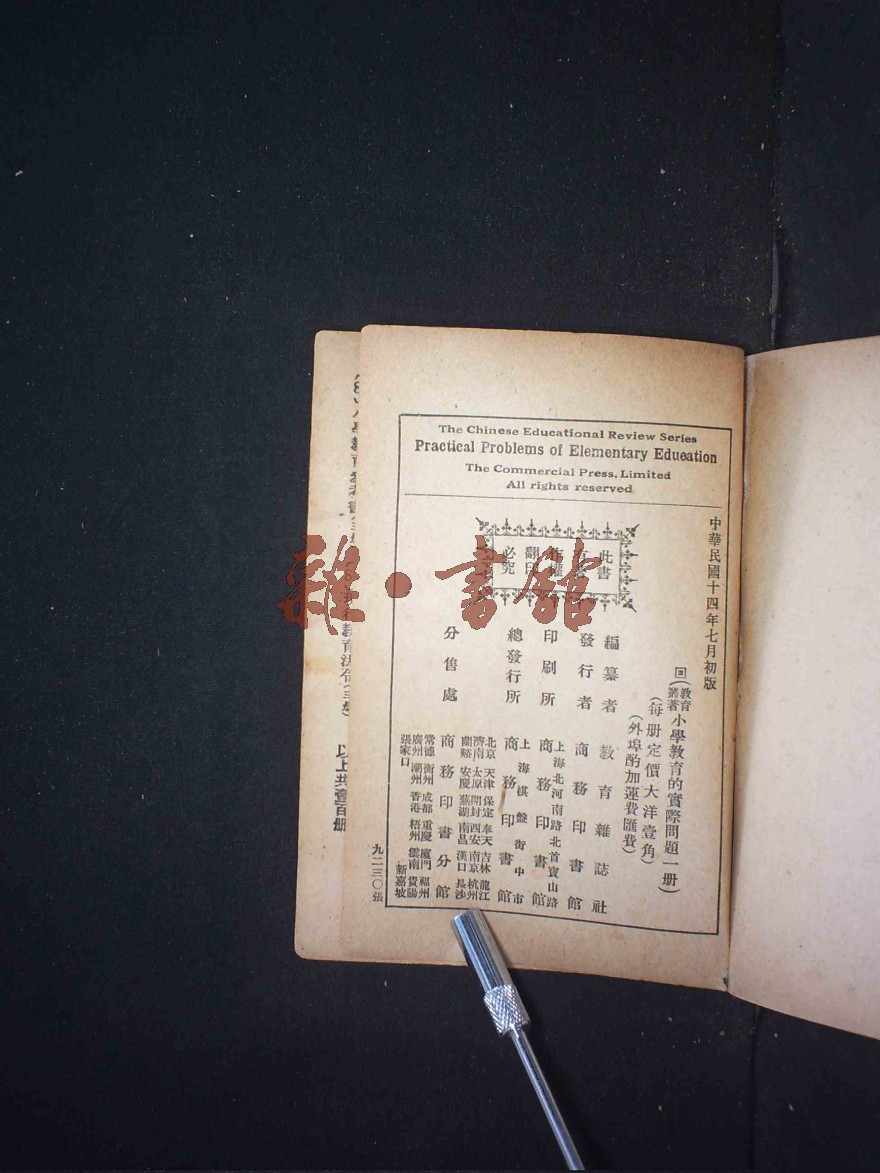 The Chinese Educational Review Series
Practical Problems of Elementary Edueation
The Commercial Press, Limited
All rights reserved
中華民國十四年七月初版
回(教育叢著)小學教育的實際問題一册)
(每册定價大洋壹角)
(外埠酌加運費匯費)
此書
有著
作權
翻印
必究
編纂者 教育雜誌社
發行者 商務印書館
印刷所 上海北河南路北首寶山路 商務印書館
總發行所 上海棋盤街中市 商務印書館
分售處 商務印書分館
北京 天津 保定 奉天 吉林 龍江
濟南 太原 開封 西安 南京 杭州
蘭谿 安慶 蕪湖 南昌 漢口 長沙
常德 衡州 成都 重慶 廈門 福州
廣州 潮州 香港 梧州 雲南 貴陽
張家口 新嘉坡
九二三〇張
以上共壹百册
雜·書館